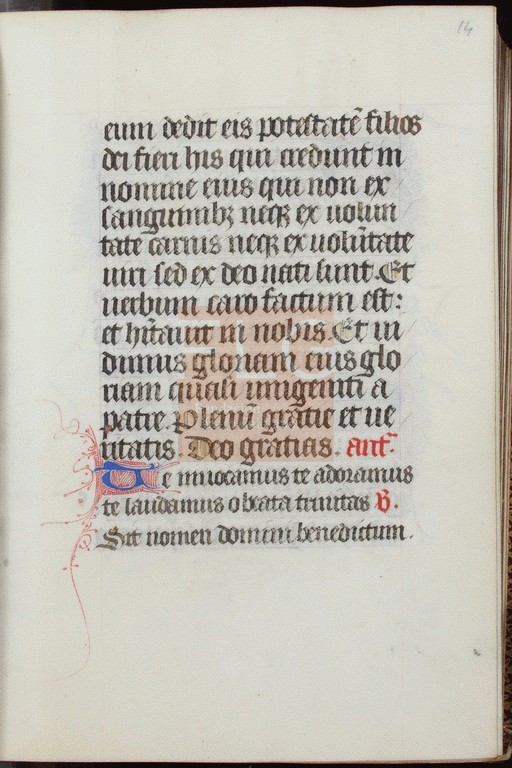 14
eum dedit eis potestatē filios
dei fieri his qui credunt in
nomine eius qui non ex
sanguinibꝫ neqꝫ ex uolun
tate carnis neqꝫ ex volūtate
uiri sed ex deo nati sunt. Et
uerbum caro factum est:
et hītauit in nobis. Et ui
dimus gloriam eius glo
riam quasi unigeniti a
patre. Plenū gratie et ue
ritatis. Deo gratias. ant̄.
Te inuocamus te adoramus
te laudamus o beata trinitas ℣.
Sit nomen domini benedictum.